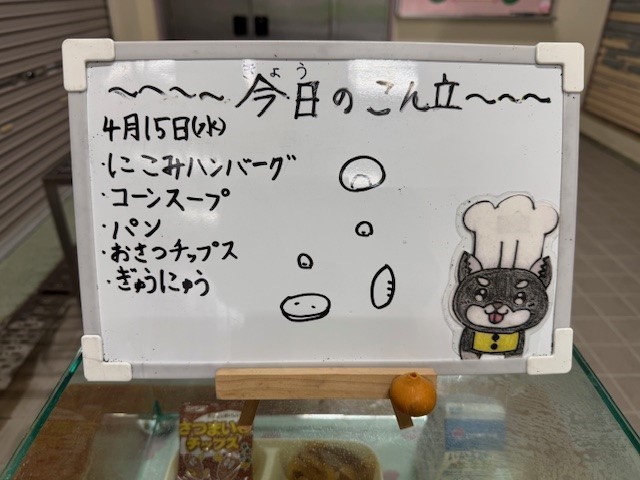 ～～～～今日のこん立～～～～
ょう
4月15日(水)
・にこみハンバーグ
・コーンスープ
・パン
・おさつチップス
・ぎゅうにゅう
さつまいも
チップス